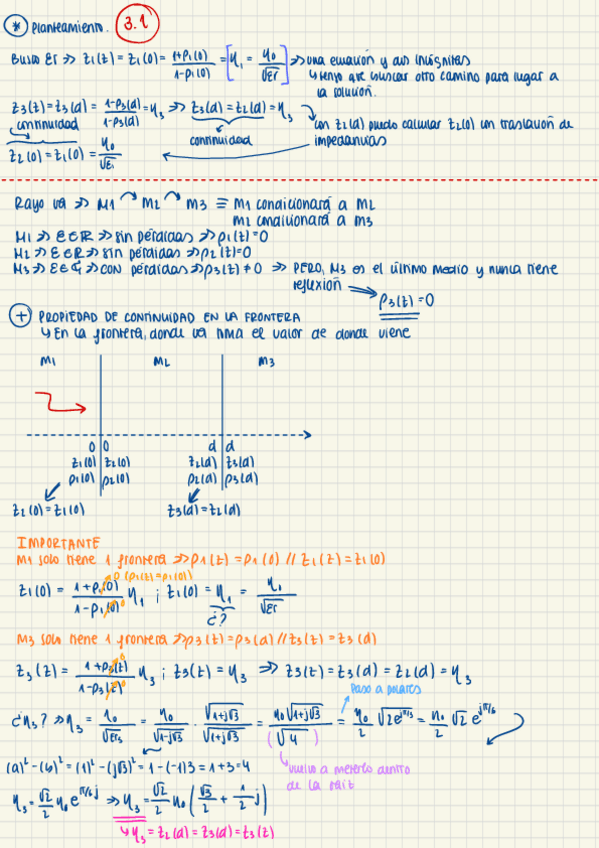 * Planteamiento. 3.1
Busco εr ⇒ Z1(z) = Z1(0) = 1+ρ1(0) / 1-ρ1(0) = [η1 = η0/√εr] ⇒ una ecuación y dos incógnitas
↳ tengo que buscar otro camino para llegar a
la solución.
Z3(z) = Z3(d) = 1+ρ3(d) / 1-ρ3(d) = η3 ⇒ Z3(d) = Z2(d) = η3
continuidad
continuidad
con Z2(d) puedo calcular Z2(0) con traslación de
impedancias
Z2(0) = Z1(0) = η0/√εr
Rayo va ⇒ M1 M2 M3 ≡ M1 condicionará a M2
M2 condicionará a M3
M1 ⇒ ε∈ℝ ⇒ sin pérdidas ⇒ ρ1(z)=0
M2 ⇒ ε∈ℝ ⇒ sin pérdidas ⇒ ρ2(z)=0
M3 ⇒ ε∈ℂ ⇒ CON pérdidas ⇒ ρ3(z) ≠ 0 ⇒ PERO, M3 es el último medio y nunca tiene
reflexión
ρ3(z)=0
+ PROPIEDAD DE CONTINUIDAD EN LA FRONTERA
↳ En la frontera, donde va toma el valor de donde viene
M1 M2 M3
0 0 d d
Z1(0) Z2(0) Z2(d) Z3(d)
ρ1(0) ρ2(0) ρ2(d) ρ3(d)
Z2(0) = Z1(0) Z3(d) = Z2(d)
IMPORTANTE
M1 solo tiene 1 frontera ⇒ ρ1(z) = ρ1(0) // Z1(z) = Z1(0)
0 (ρ1(z)=ρ1(0)
Z1(0) = 1+ρ1(0) / 1-ρ1(0) η1 ; Z1(0) = η1 = η0/√εr
¿?
M3 solo tiene 1 frontera ⇒ ρ3(z) = ρ3(d) // Z3(z) = Z3(d)
Z3(z) = 1+ρ3(z) / 1-ρ3(z) η3 ; Z3(z) = η3 ⇒ Z3(z) = Z3(d) = Z2(d) = η3
Paso a polares
¿η3? ⇒ η3 = η0/√εr3 = η0/√1-j√3 · √1+j√3/√1+j√3 = η0√1+j√3/(√4) = η0/2 √2e^jπ/3 = η0/2 √2 e^jπ/6
(a)² - (b)² = (1)² - (j√3)² = 1 - (-1)3 = 1+3 = 4
vuelvo a meterlo dentro
de la raíz
η3 = √2/2 η0 e^π/6 j ⇒ η3 = √2/2 η0 (√3/2 + 1/2 j)
↳ η3 = Z2(d) = Z3(d) = Z3(z)